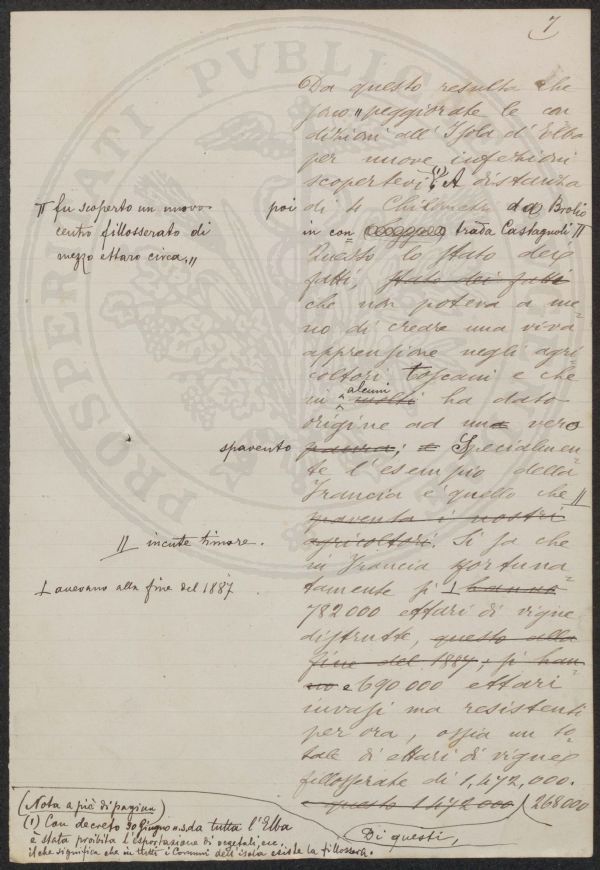 7
Da questo resulta che
sono peggiorate le con
dizioni all' Isola d' Elba
per nuove infezioni
scopertevi (1) A distanza
poi di 4 Chilometri da Brolio
in con trada Castagnoli //
// fu scoperto un nuovo
centro fillosserato di
mezzo ettaro circa. //
Questo lo stato dei
fatti, stato dei fatti
che non poteva a me
no di creare una viva
apprensione negli agri
coltori toscani e che
in alcuni molti ha dato
origine ad una vero
spavento paura; e Specialmen
te l'esempio della
Francia è quello che //
paventa i nostri
agricoltori. Si sa che
// incute timore.
in Francia sfortuna
tamente si ⊥ hanno
⊥ avevano alla fine del 1887
782000 ettari di vigne
distrutte, questo alla
fine del 1887, si han
no e 690000 ettari
invasi ma resistenti
per ora, ossia un to
tale di ettari di vigne
fillosserate di 1,472,000.
e questo 1.472000 / 268000
Di questi,
(Nota a piè di pagina)
(1) Con decreto 30 Giugno u.s. da tutta l'Elba
è stata proibita l'esportazione di vegetali, ecc.
il che significa che in tutti i Comuni dell'isola esiste la fillossera.
PROSPERITATI PVBLICAE